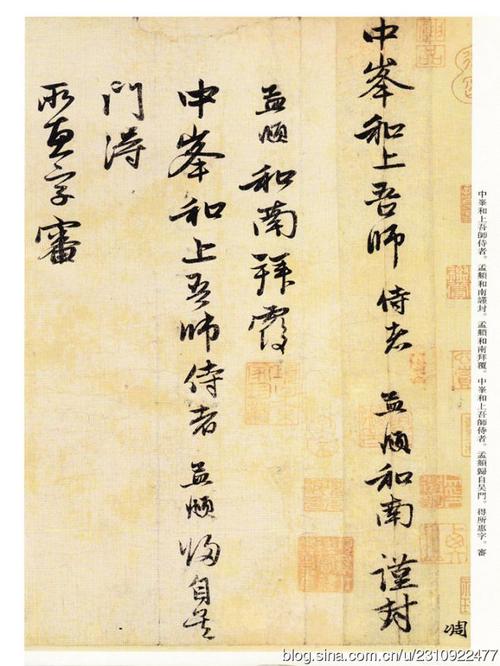 中峯和上吾師侍者。孟頫和南謹封。孟頫和南拜覆。中峯和上吾師侍者。孟頫歸自吳門。得所惠字。審
中峯和上吾師 侍者 孟頫和南 謹封
孟頫和南拜覆
中峯和上吾師侍者 孟頫歸自吳
門得
所惠字審
blog.sina.com.cn/u/2310922477